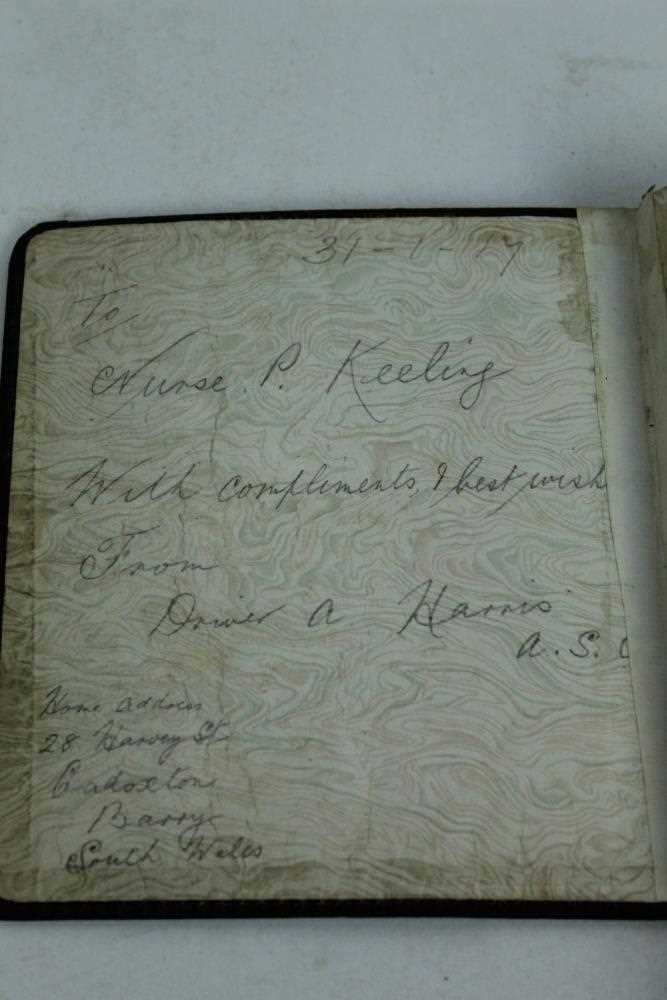 31-1-17
To
Nurse. P. Keeling
With compliments, & best wish
From
Driver A Harris
A.S.C
Home address
28 Harvey St
Cadoxton
Barry
South Wales